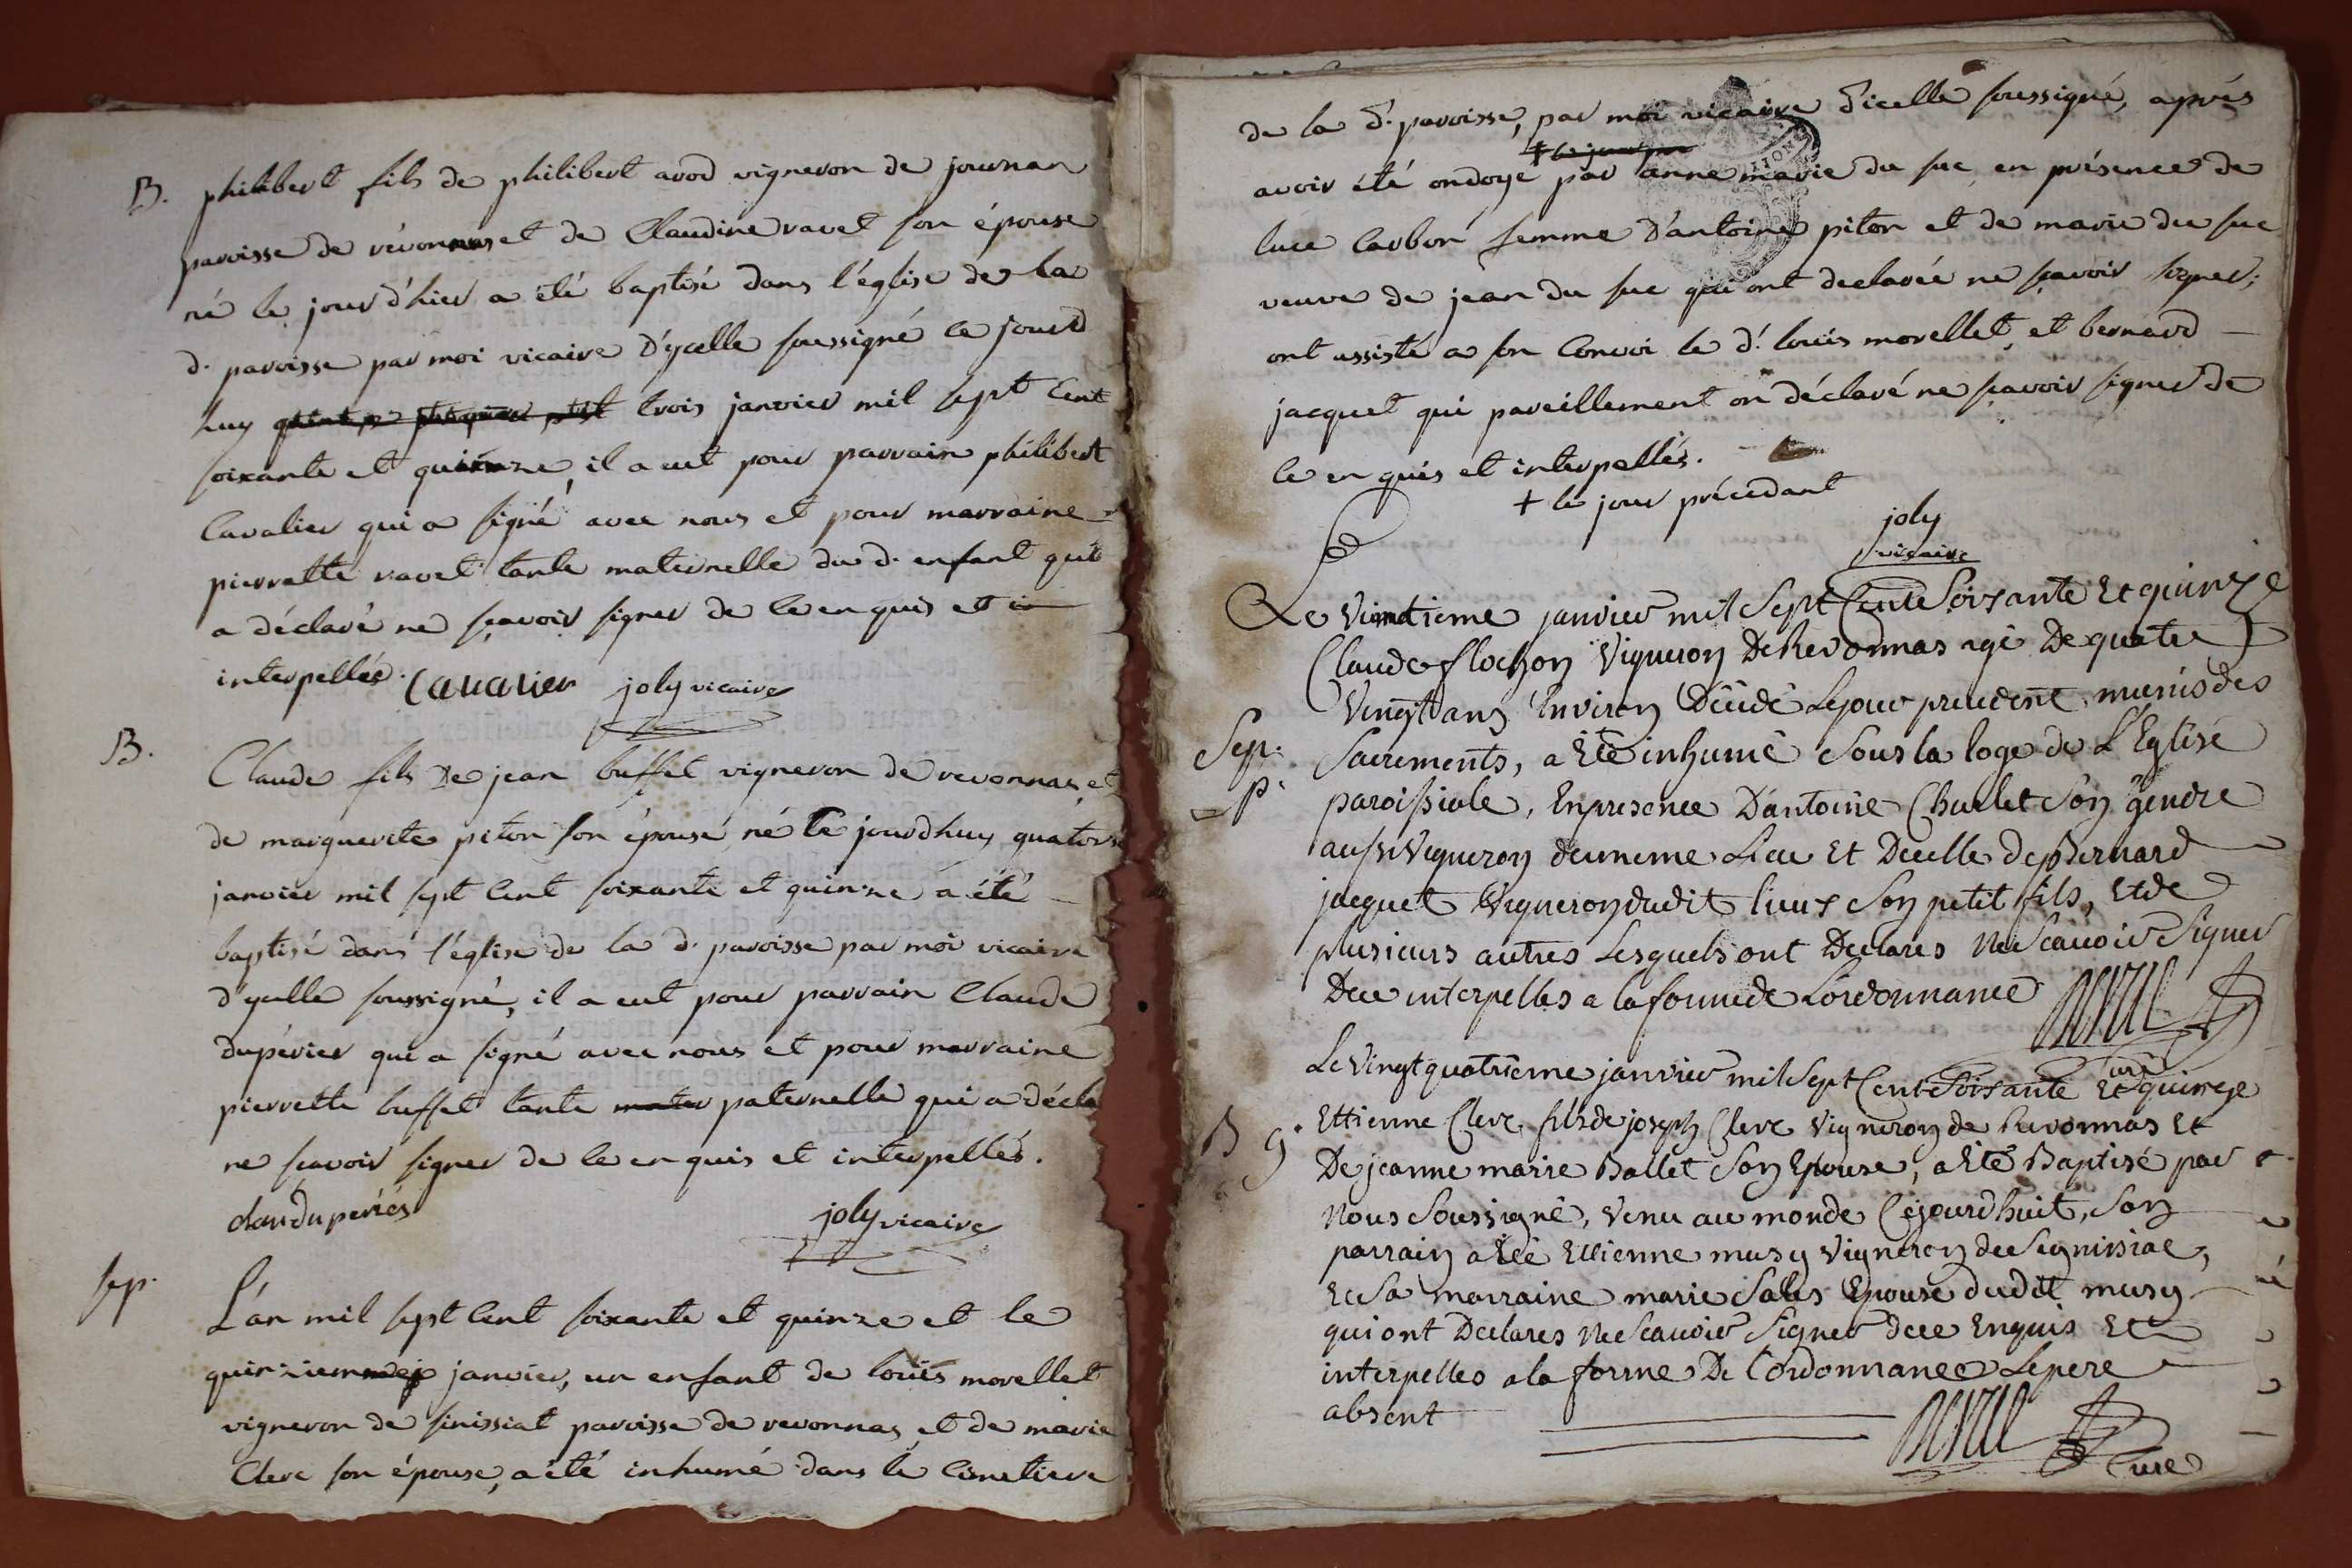 B. philibert fils de philibert avod vigneron de journan
paroisse de révonnas et de Claudine ravet son épouse
né le jour d'hier a été baptisé dans l'église de la
d. paroisse par moi vicaire d'ycelle soussigné ce jourd
huy trois janvier mil sept cent
soixante et quinze, il a eut pour parrain philibert
Cavalier qui a signé avec nous et pour marraine
pierrette ravet tante maternelle du d. enfant qui
a déclaré ne sçavoir signer de ce enquis et in
interpellés. Cavalier joly vicaire
B. Claude fils De jean buffet vigneron de revonnas, et
de marguerite piton son épouse né Ce jourdhuy quatorse
janvier mil sept cent soixante et quinze a été
baptisé dans l'église de la d. paroisse par moi vicaire
d'ycelle soussigné, il a eut pour parrain Claude
dupérier qui a signé avec nous et pour marraine
pierrette buffet tante paternelle qui a décla
ne scavoir signer de ce enquis et interpellés.
claudu periés joly vicaire
sep. L'an mil sept cent soixante et quinze et le
quinzieme janvier, un enfant de louïs morellet
vigneron de sinissiat paroisse de revonnas et de marie
Clerc son épouse, a été inhumé dans le Cimetiere
de la d. paroisse, par moi vicaire d'icelle soussigné, aprés
avoir été ondoyé † par anne marie du suc en présence de
luce Carbon femme d'antoine piton et de marie du suc
veuve de jean du suc qui ont declarée ne sçavoir signer;
ont assisté a son Convoi le d. louis morellet, et bernard
jacquet qui pareillement on déclaré ne scavoir signer de
ce en quis et interpellés.
† le jour précedant
joly
vicaire
Le Vinttieme janvier mil Sept Cent Soixante Et quinze
Claude flochon Vigneron De Revonnas agé De quatre
Vingt ans Environ Décédé Le jour precedent munis des
Sep. Sacrements, a Eté inhumé Sous la loge de L'Eglise
p. paroissiale, En presence D'antoine Charlet Son gendre
aussi Vigneron du meme Lieu Et De celle de Bernard
jacquet Vigneron dudit lieux Son petit fils, Et de
plusieurs autres Lesquels ont Declarés Ne Scauoir Signer
De ce interpelles a la forme de Lordonnance
curé
Le Vingt quatrieme janvier mil Sept Cent Soixante Et quinze
B g. Ettienne Clerc fils de joseph Clerc Vigneron de Revonnas Et
De jeanne marie Ballet Son Epouse, a Eté Baptisé par
Nous Soussigné, Venu au monde Cejourdhuit, Son
parrain a Eté Ettienne musy Vigneron de Seignissiat,
Et Sa marraine marie Sales Epouse dudit musy
qui ont Declarés Ne Scauoir Signer de ce Enquis Et
interpelles a la forme De Lordonnance Le pere
absent
Curé